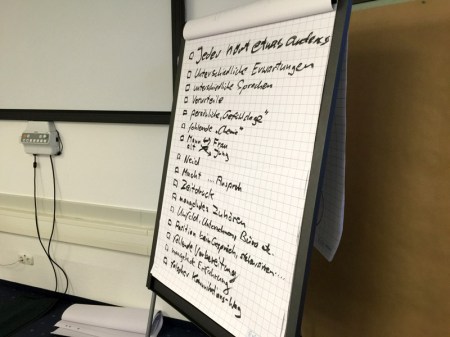 Jeder hört etwas anderes
Unterschiedliche Erwartungen
unterschiedliche Sprachen
Vorurteile
persönliche „Gefühlslage"
fehlende „Chemie"
Mann Frau
alt Jung
Neid
Macht ... Ansprüche
Zeitdruck
mangelndes Zuhören
Umfeld, Unternehmen, Büro etc.
Position beim Gespräch,
fehlende Vorbereitung
mangelnde Erfahrung
falscher Kommunikations-Weg